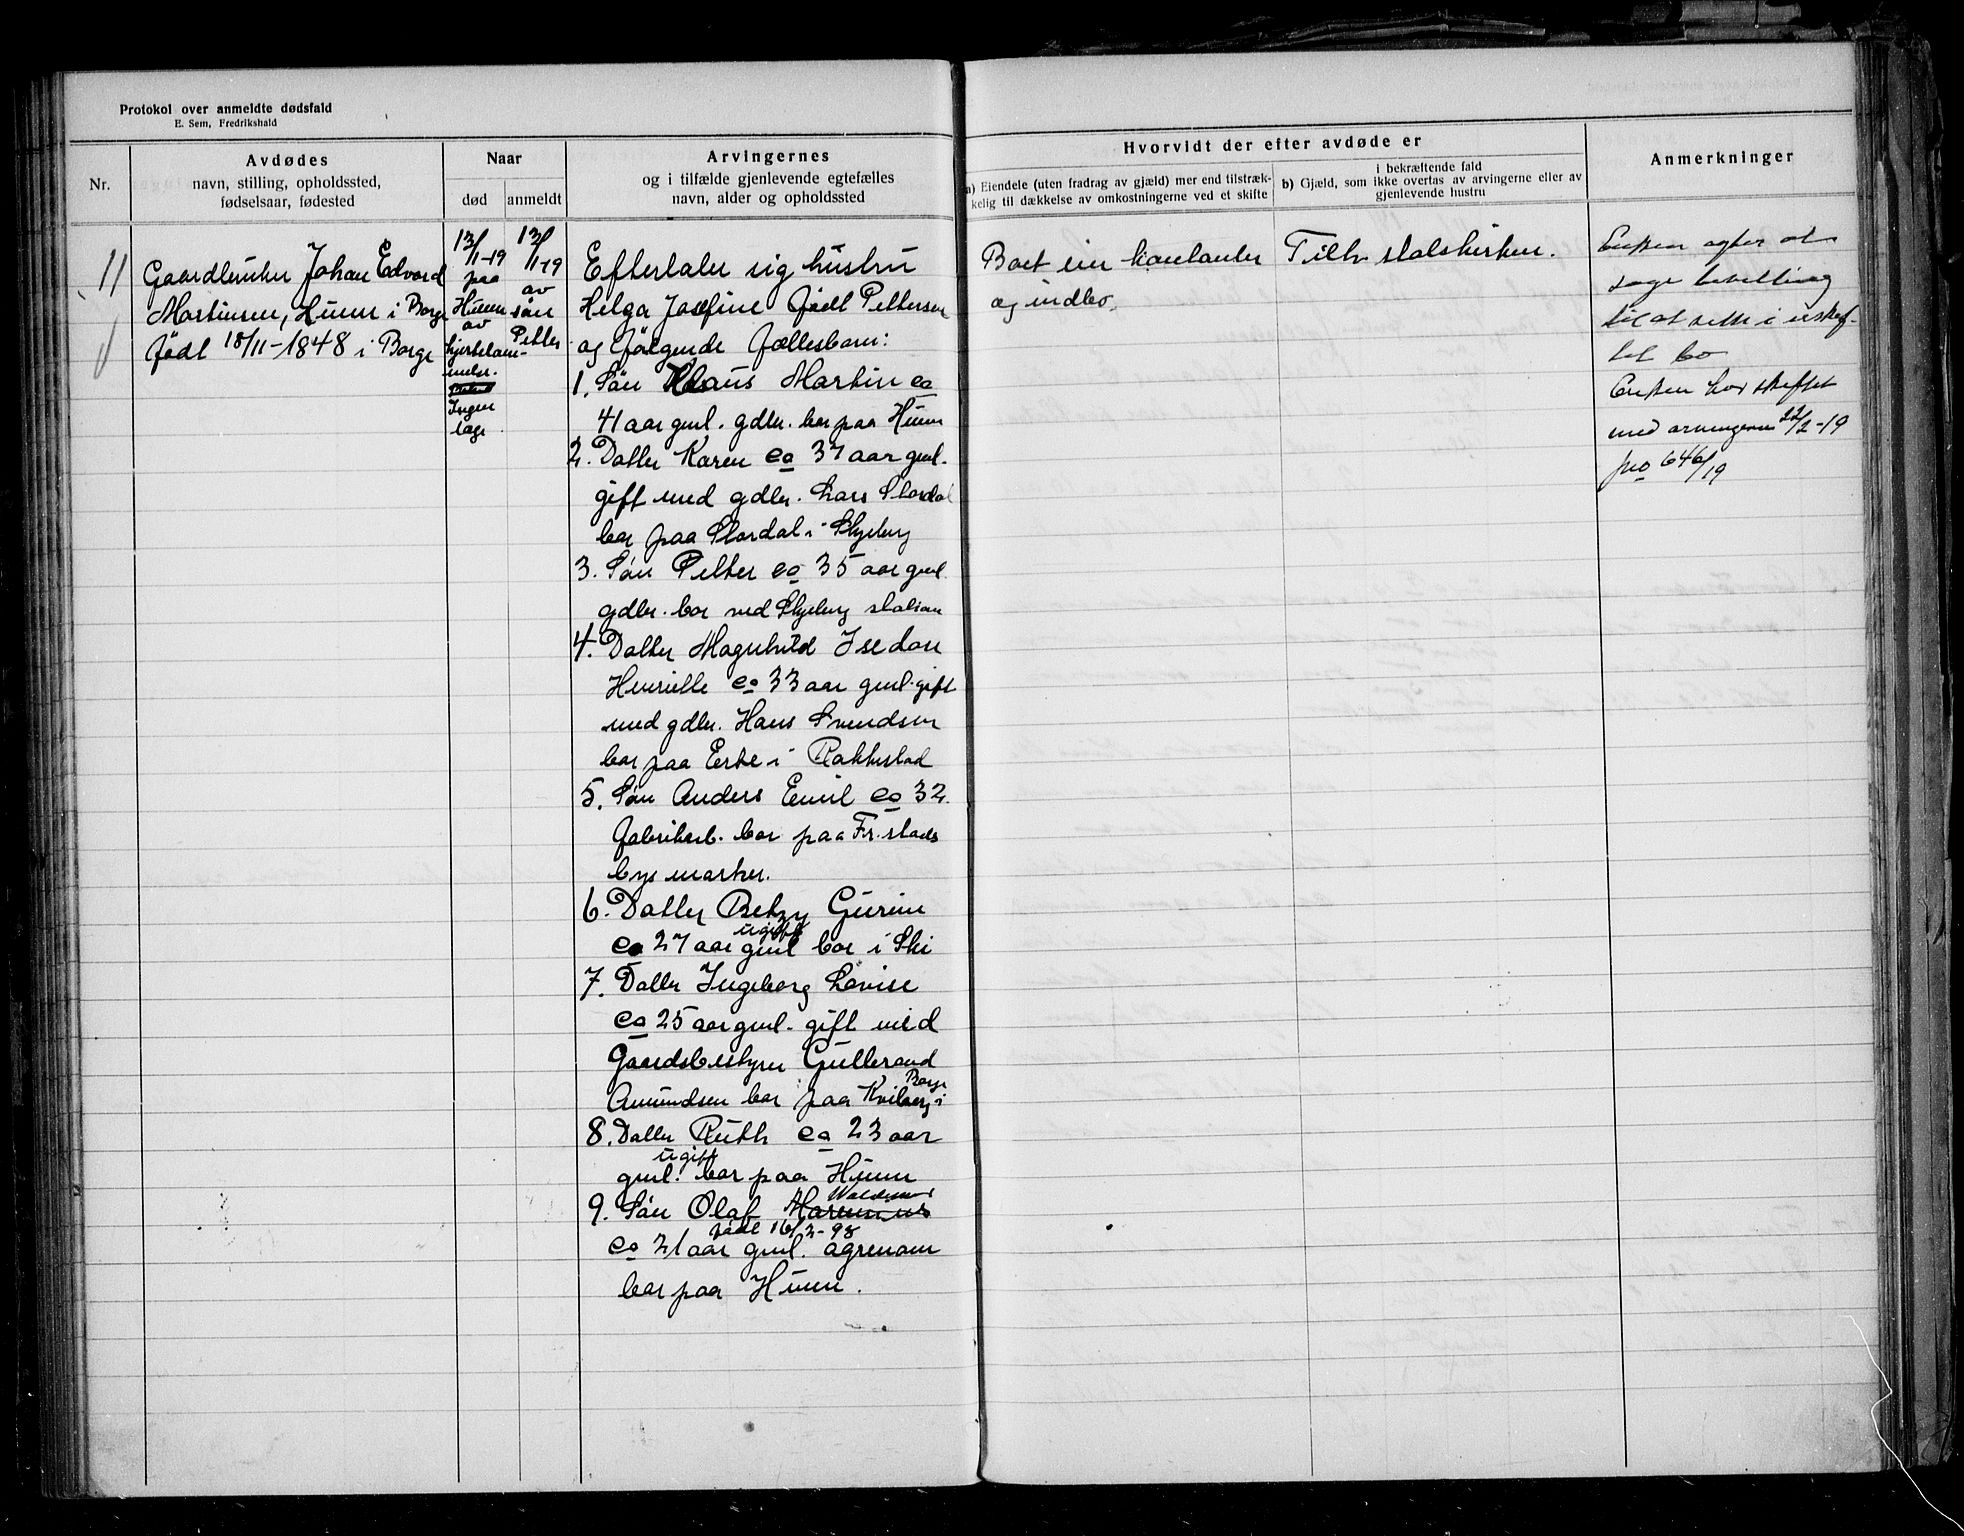 Protokol over anmeldte dødsfald
E. Sem, Fredrikshald
Nr.
Avdødes
navn, stilling, opholdssted,
fødselsaar, fødested
Naar
død
anmeldt
Arvingernes
og i tilfælde gjenlevende egtefælles
navn, alder og opholdssted
Hvorvidt der efter avdøde er
a) Eiendele (uten fradrag av gjæld) mer end tilstræk-
kelig til dækkelse av omkostningerne ved et skifte
i bekræftende fald
b) Gjæld, som ikke overtas av arvingerne eller av
gjenlevende hustru
Anmerkninger
11
Gaardbruker Johan Edvard
Martinsen, Hunn i Borge
født 18/11-1848 i Borge
13/1-19
paa
Hunn
av
hjertelam-
melse.
Ingen
læge.
13/1-19
av
søn
Petter
Efterlater sig hustru
Helga Josefine født Pettersen
og følgende fællesbarn:
1. Søn Klaus Martin ca
41 aar gml. gdbr. bor paa Hunn
2. Datter Karen ca 37 aar gml.
gift med gdbr. Lars Stordal
bor paa Stordal i Skjeberg
3. Søn Petter ca 35 aar gml.
gdbr. bor ved Skjeberg station
4. Datter Magnhild Isedon
Henriette ca 33 aar gml. gift
med gdbr. Hans Svendsen
bor paa Erte i Rakkestad
5. Søn Anders Emil ca 32
fabrikarb. bor paa Fr.stads
bys marker.
6. Datter Betzy Gurine
ca 27 aar gml ugift bor i Ski
7. Datter Ingeborg Lovise
ca 25 aar gml. gift med
Gaardsbestyrer Gulbrand
Amundsen bor paa Kviberg i Borge
8. Datter Ruth ca 23 aar
gml. ugift bor paa Hunn
9. Søn Olaf Marenius Waldemar
født 16/2-98
ca 21 aar gml. agronom
bor paa Hunn.
Boet eier kontanter
og indbo.
Tilh. statskirken.
Enken agter at
søge bevilling
til at sitte i uskif-
tet bo
Enken har skiftet
med arvingerne 22/2-19
jno 646/19